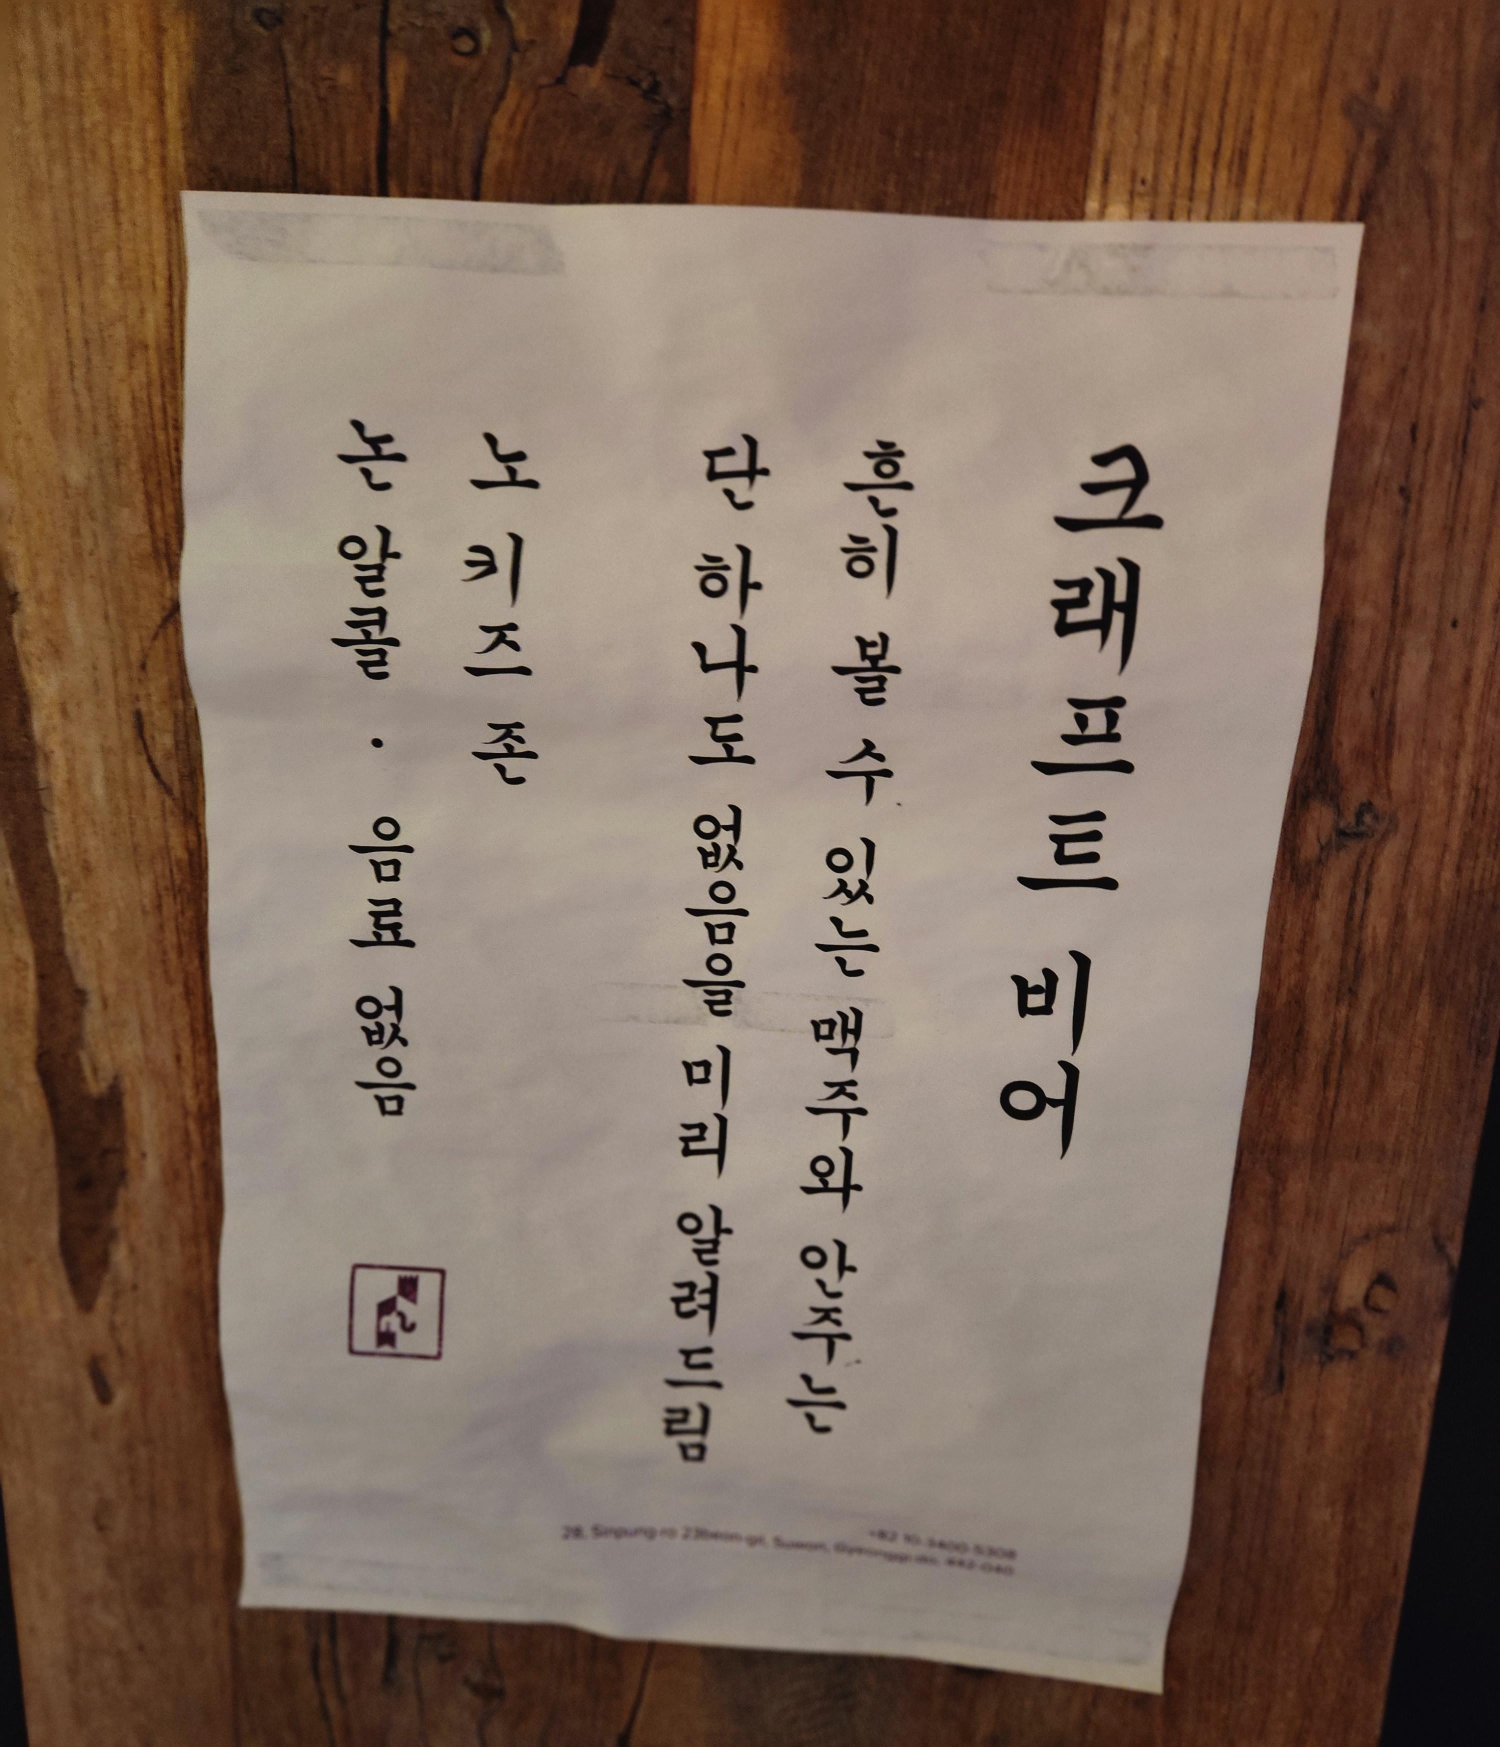 크래프트 비어
흔히 볼 수 있는 맥주와 안주는
단 하나도 없음을 미리 알려드림
노 키즈 존
논 알콜 · 음료 없음
+82 10-3400-5308
28, Sinpung-ro 23beon-gil, Suwon, Gyeonggi-do, 442-040